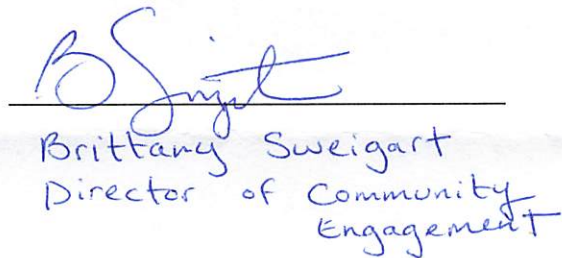 Brittany Sweigart
Director of Community
Engagement